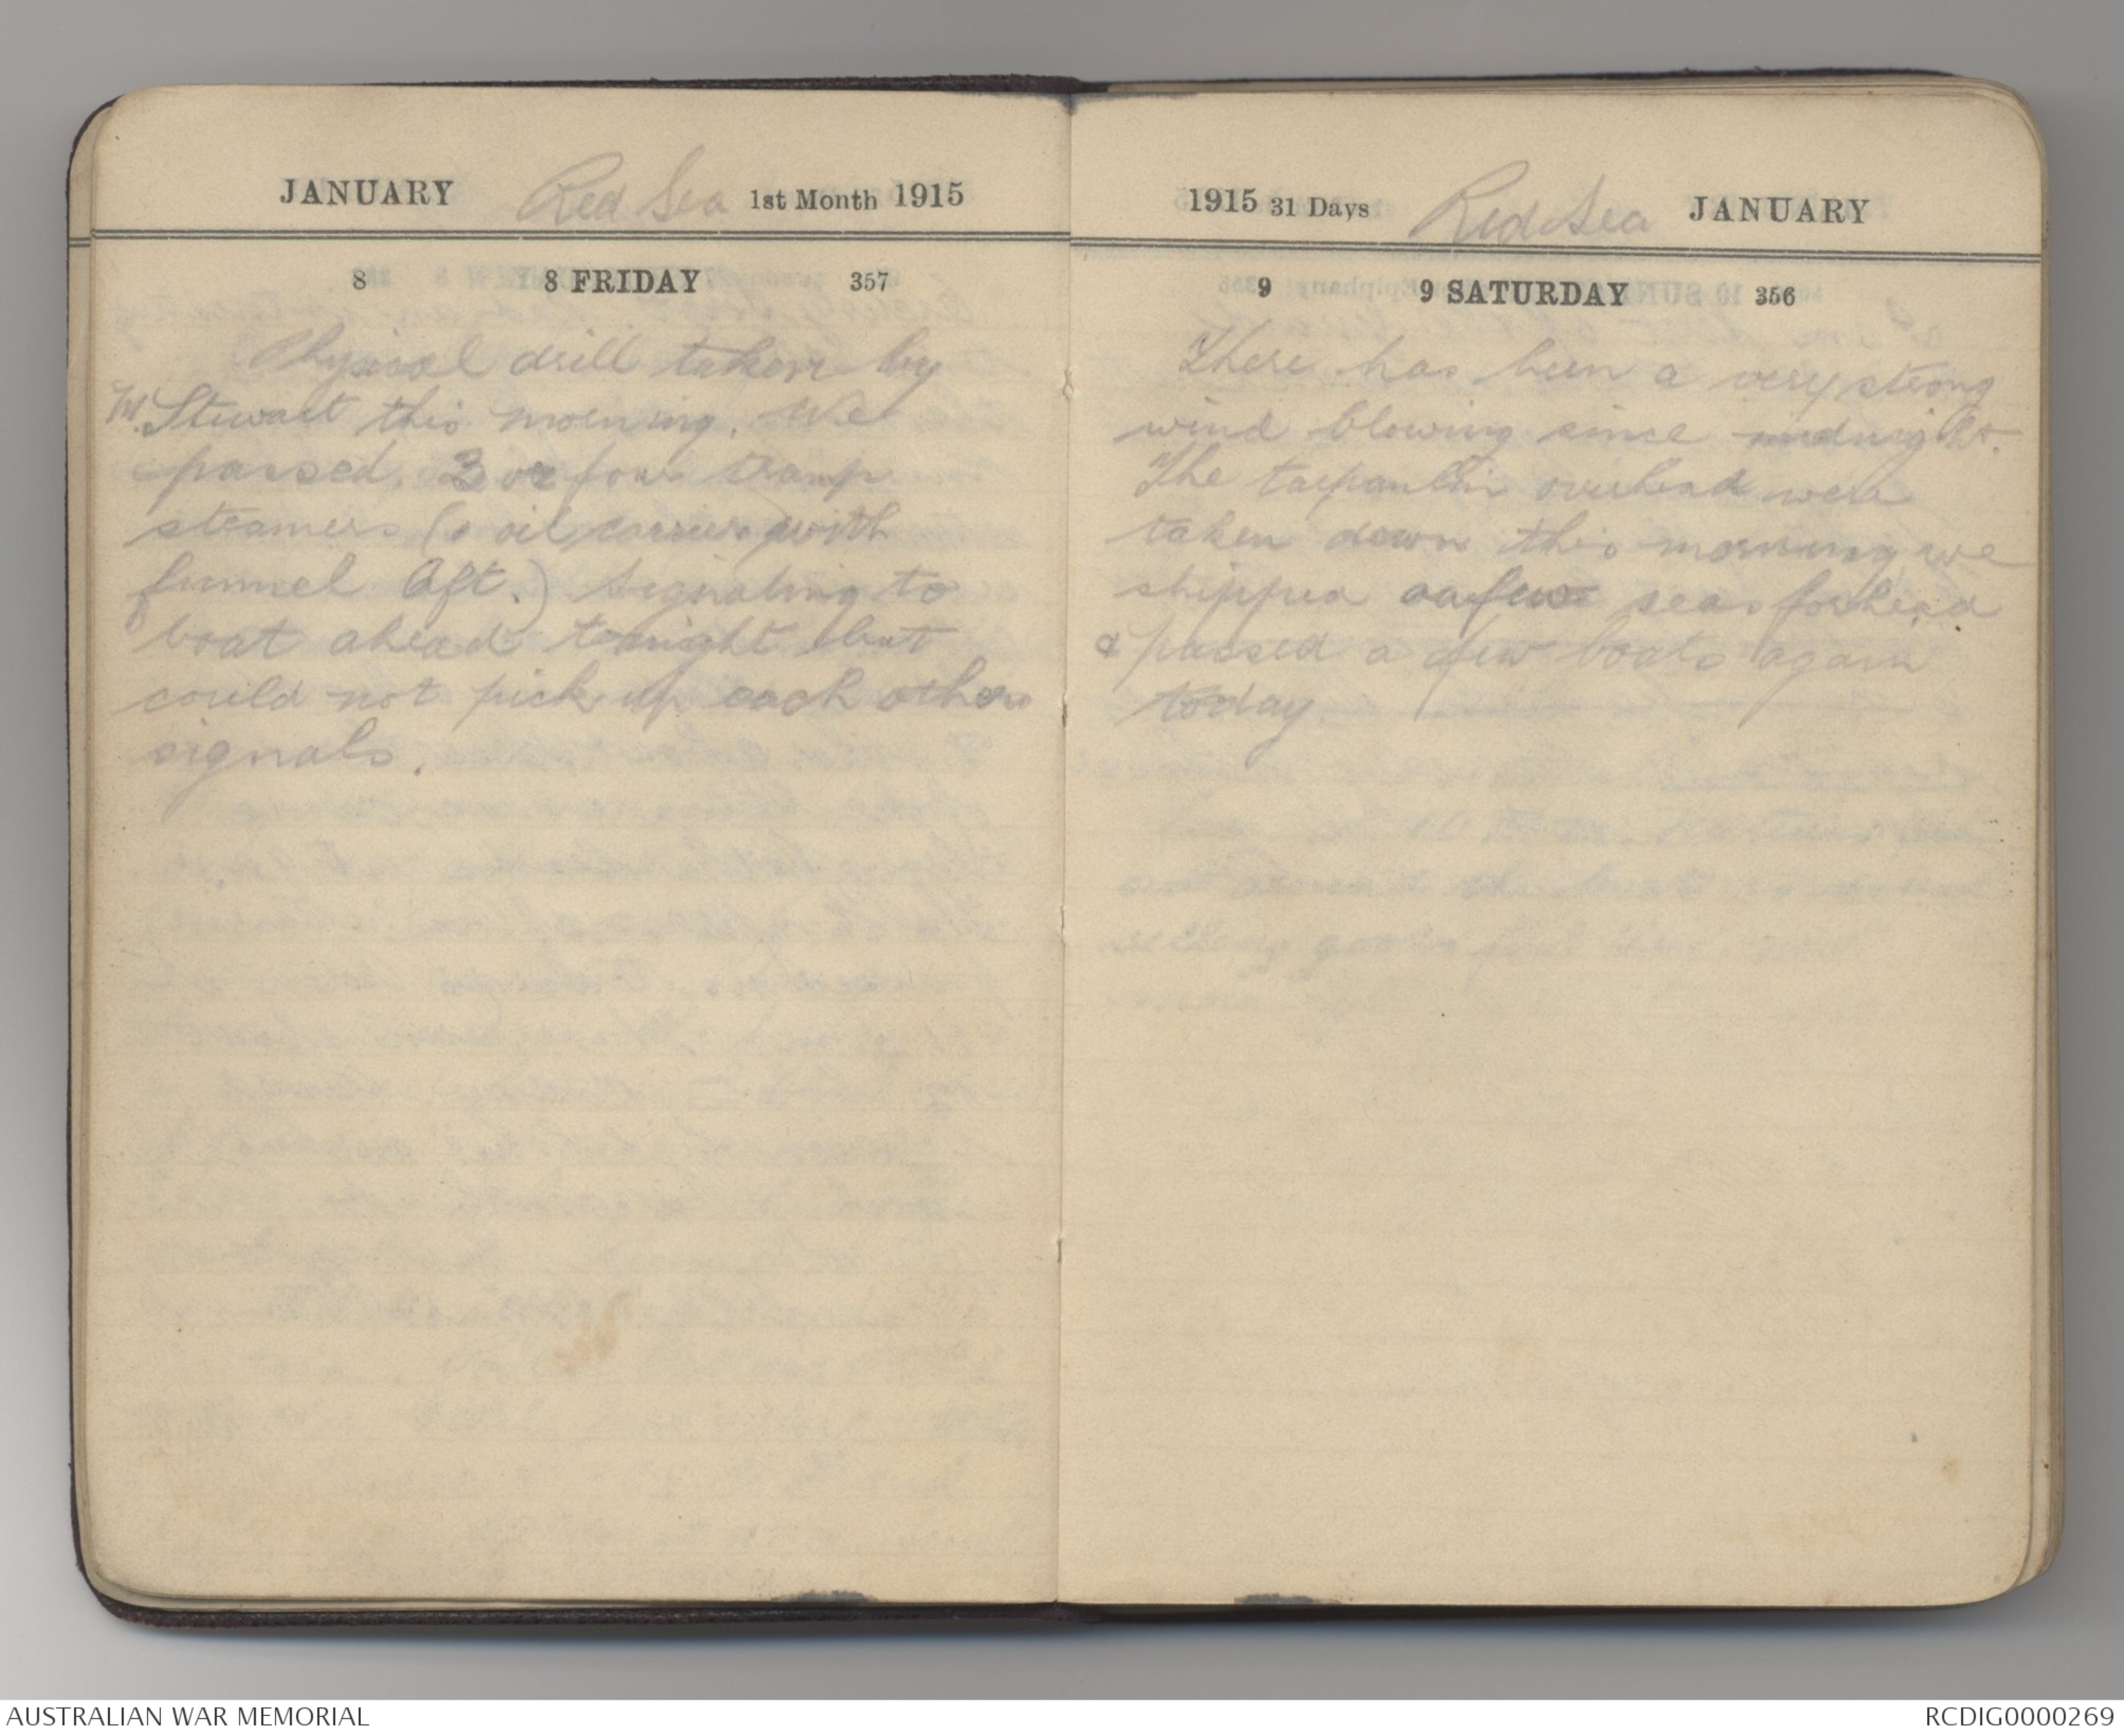 JANUARY Red Sea 1st Month 1915
8 8 FRIDAY 357
Physical drill taken by
M. Stewart this morning. We
passed 3 or four tramp
steamers (& oil carriers with
funnel aft.) Signaling to
boat ahead tonight but
could not pick up each others
signals.
1915 31 Days Red Sea JANUARY
9 9 SATURDAY 356
There has been a very strong
wind blowing since midnight.
The tarpaulin overhead were
taken down this morning we
shipped a few seas forhead
& passed a few boats again
today
AUSTRALIAN WAR MEMORIAL
RCDIG0000269